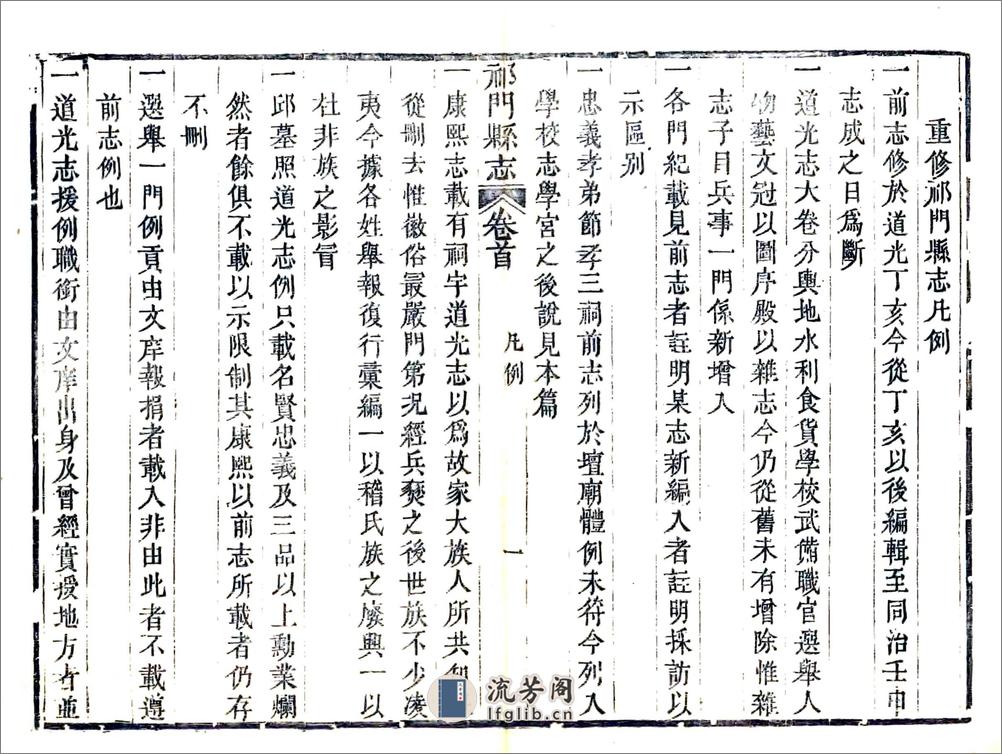 重修祁門縣志凡例
一前志修於道光丁亥今從丁亥以後編輯至同治壬申
志成之日爲斷
一道光志大卷分輿地水利食貨學校武備職官選舉人
物藝文冠以圖序殿以雜志今仍從舊未有增除惟雜
志子目兵事一門係新增入
一各門紀載見前志者註明某志新編入者註明採訪以
示區别
一忠義孝弟節孝三祠前志列於壇廟體例未符今列入
學校志學宮之後說見本篇
祁門縣志 卷首 凡例 一
一康熙志載有祠宇道光志以爲故家大族人所共知
從刪去惟徽俗最嚴門第况經兵燹之後世族不少淩
夷今據各姓舉報復行彙編一以稽氏族之廢興一以
杜非族之影冒
一邱墓照道光志例只載名賢忠義及三品以上勳業爛
然者餘俱不載以示限制其康熙以前志所載者仍存
不刪
一選舉一門例貢由文庠報捐者載入非由此者不載遵
前志例也
一道光志援例職銜由文庠出身及曾經實授地方者並
流芳阁
lfglib.cn